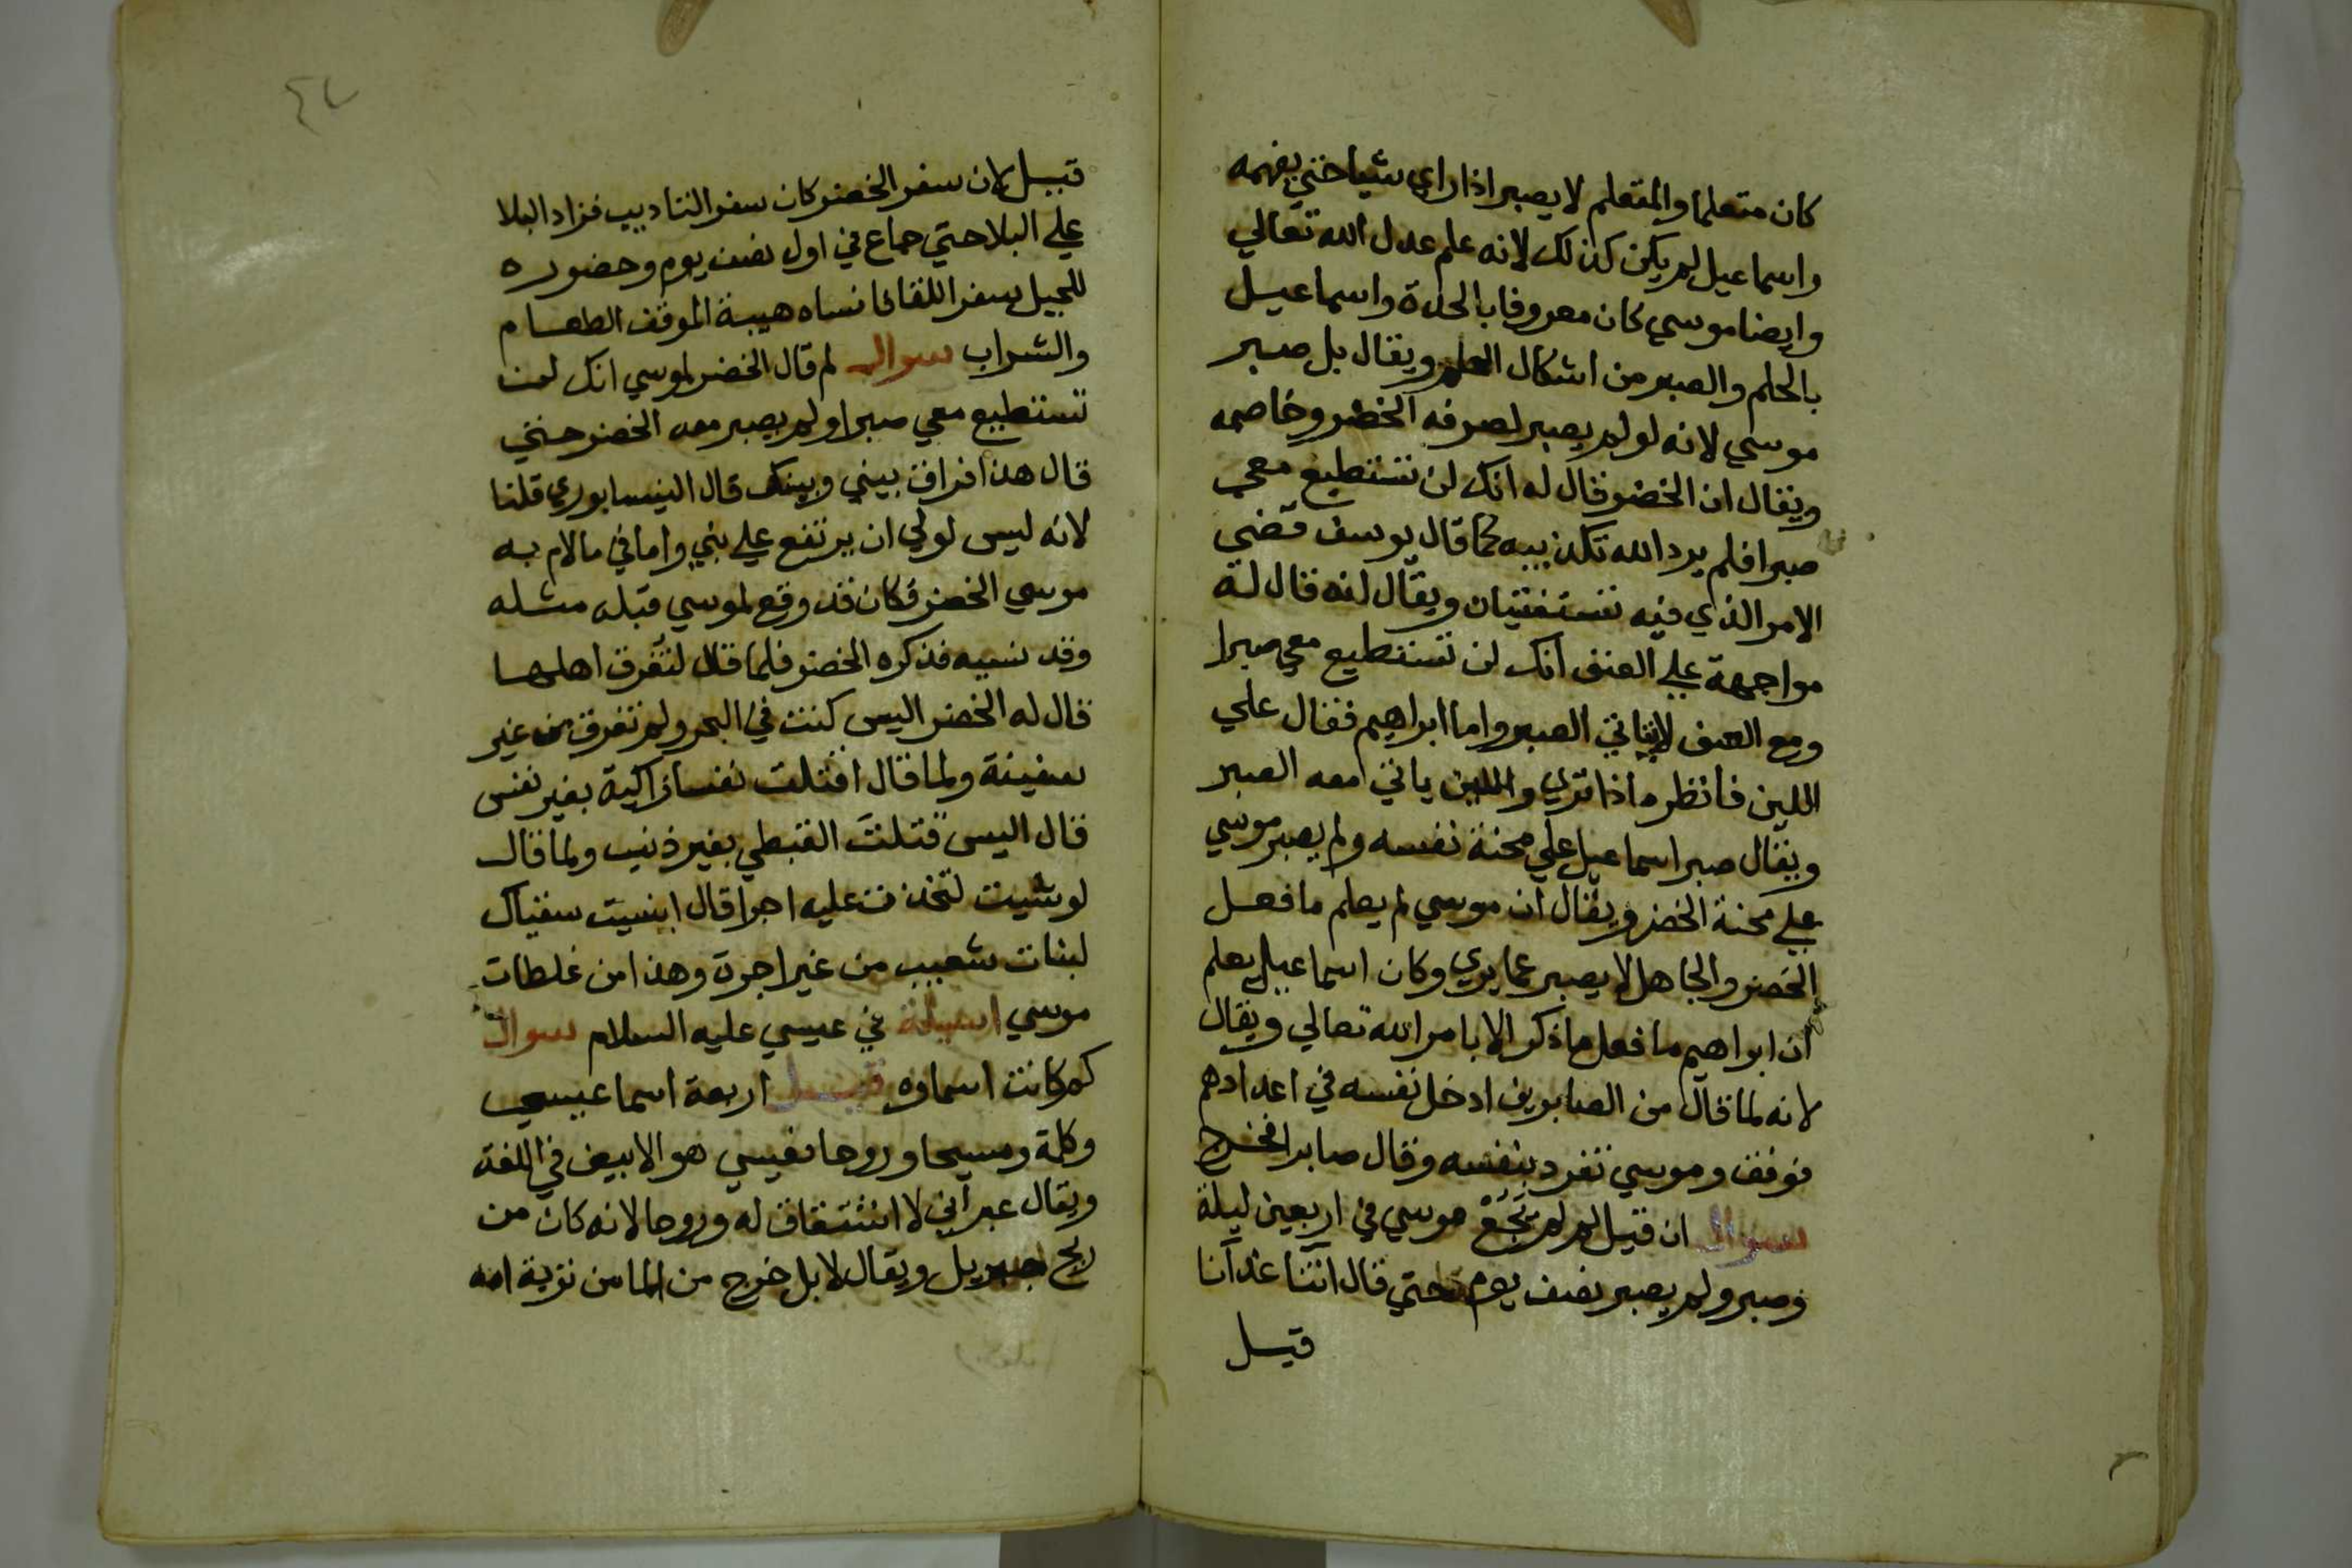 كان متعلما والمتعلم لا يصبر اذا راي شيا حتي يفهمه
واسماعيل لم يكن كذلك لانه علم عدل الله تعالي
وايضا موسي كان معروفا بالحدة واسماعيل
بالحلم والصبر من اشكال الحلم ويقال بل صبر
موسي لانه لو لم يصبر لصرفه الخضر وخاصمه
ويقال ان الخضر قال له انك لن تستطيع معي
صبرا فلم يرد الله تكذيبه كما قال يوسف قضي
الامر الذي فيه تستفتيان ويقال لنه قال له
مواجهة علي العنف انك لن تستطيع معي صبرا
ومع العنف لا ياتي الصبر واما ابراهيم فقال علي
اللين فانظر ماذا تري واللين ياتي معه الصبر
ويقال صبر اسماعيل علي محنة نفسه ولم يصبر موسي
علي محنة الخضر ويقال ان موسي لم يعلم ما فعل
الخضر والجاهل لا يصبر عما يري وكان اسماعيل يعلم
ان ابراهيم ما فعل ما ذكر الا بامر الله تعالي ويقال
لانه لما قال من الصابرين ادخل نفسه في اعدادهم
فوفق وموسي تفرد بنفسه وقال صابرا فخرج
سوال ان قيل لم لم يَجُعْ موسي في اربعين ليلة
وصبر ولم يصبر نصف يوم حتي قال اتنا غدانا
قيل
٤٧
قيل لان سفر الخضر كان سفر التاديب فزاد البلا
علي البلا حتي جاع في اول نصف يوم وحضوره
للجبل سفر اللقا فانساه هيبة الموقف الطعام
والشراب سوال لم قال الخضر لموسي انك لن
تستطيع معي صبرا ولم يصبر معه الخضر حتي
قال هذا فراق بيني وبينك قال النيسابوري قلنا
لانه ليس لولي ان يرتفع علي نبي واما في ما لام به
موسي الخضر فكان قد وقع لموسي قبله مثله
وقد نسيه فذكره الخضر فلما قال لتغرق اهلها
قال له الخضر اليس كنت في البحر ولم تغرق من غير
سفينة ولما قال اقتلت نفسا زاكية بغير نفس
قال اليس قتلتَ القبطي بغير ذنب ولما قال
لو شيت لتخذت عليه اجرا قال انسيت سقياك
لبنات شعيب من غير اجرة وهذا من غلطات
موسي اسيلة في عيسي عليه السلام سوال
كم كانت اسماوه قيل اربعة اسما عيسي
وكلمة ومسيحا وروحا فعيسي هو الابيض في اللغة
ويقال عبراني لا اشتقاق له وروحا لانه كان من
ريح جبريل ويقال لا بل خرج من الما من تربة امه